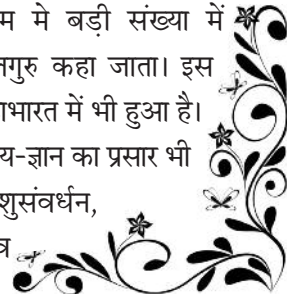 म मे बड़ी संख्या में
गुरु कहा जाता। इस
भारत में भी हुआ है।
य-ज्ञान का प्रसार भी
शुसंवर्धन,